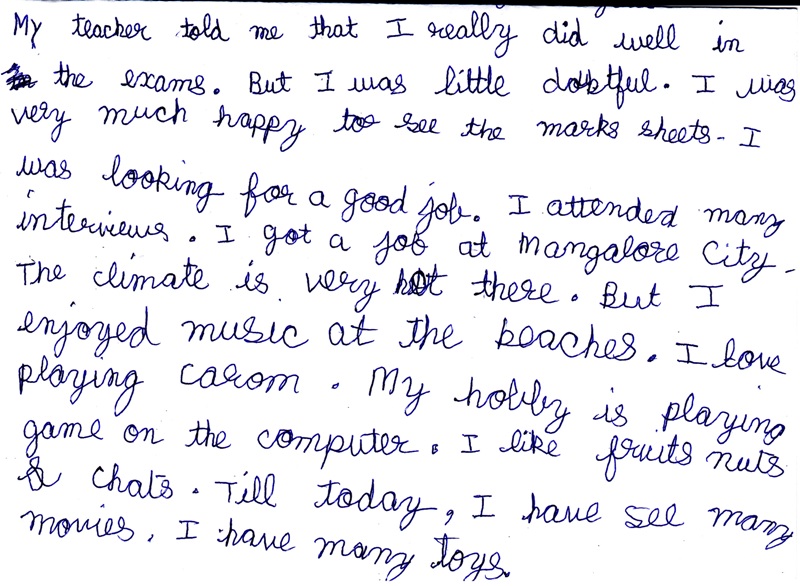 My teacher told me that I really did well in
the exams. But I was little doubtful. I was
very much happy to see the marks sheets. I
was looking for a good job. I attended many
interviews. I got a job at Mangalore City.
The climate is very hot there. But I
enjoyed music at the beaches. I love
playing carom. My hobby is playing
game on the computer. I like fruits nuts
& chats. Till today, I have see many
movies. I have many toys.